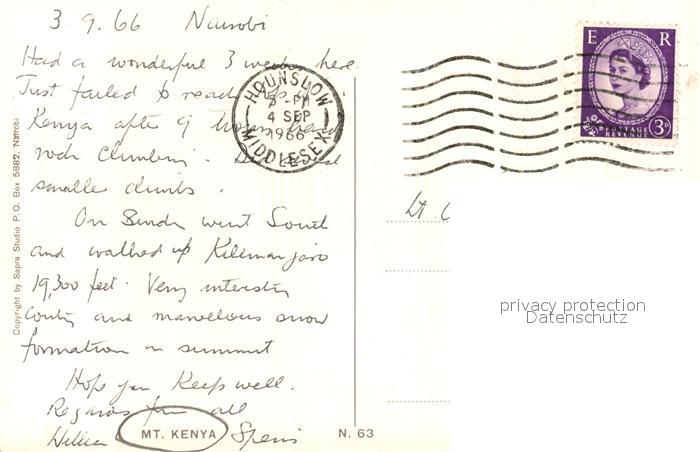 3.9.66 Nairobi
Had a wonderful 3 weeks here.
Just failed to reach
Kenya after 9
rock climbing.
smaller climbs.
On Sunday went South
and walked up Kilimanjaro
19,300 feet. Very interesting
and marvellous snow
formation on summit
Hope you keep well.
Regards from all
MT. KENYA
N. 63
Copyright by Sapra Studio P.O. Box 5882, Nairobi
HOUNSLOW
4 SEP
1966
MIDDLESEX
E R
POSTAGE
REVENUE
3D
Lt
privacy protection
Datenschutz